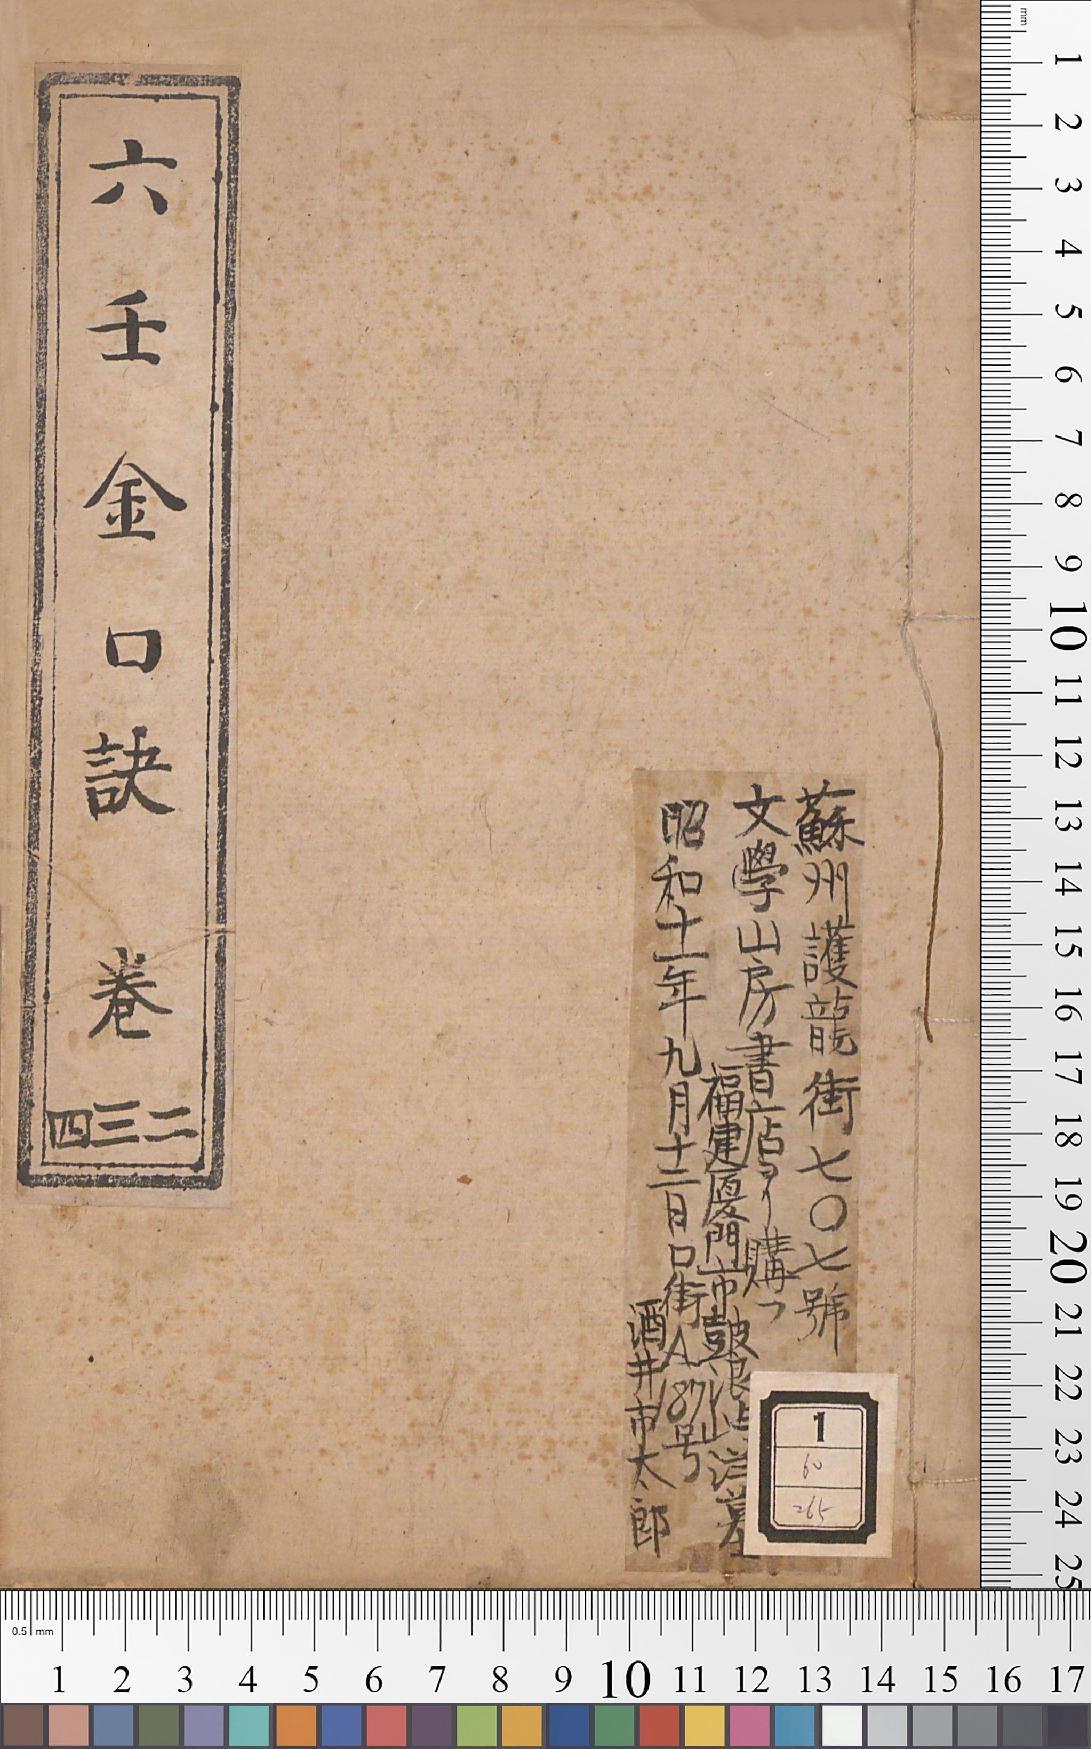 六壬金口訣 卷
二三四
蘇州護龍街七〇七號
文學山房書店ヨリ購フ
福建廈門市鼓浪
昭和十一年九月十二日
口街A187号
酒井市太郎
1
60
265
mm
1
2
3
4
5
6
7
8
9
10
11
12
13
14
15
16
17
18
19
20
21
22
23
24
25
0.5 mm
1 2 3 4 5 6 7 8 9 10 11 12 13 14 15 16 17